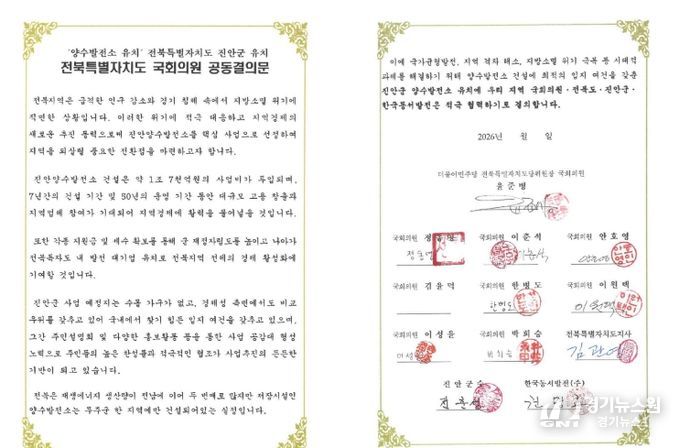 '양수발전소 유치' 전북특별자치도 진안군 유치
전북특별자치도 국회의원 공동결의문
전북지역은 급격한 인구 감소와 경기 침체 속에서 지방소멸 위기에
직면한 상황입니다. 이러한 위기에 적극 대응하고 지역경제의
새로운 추진 동력으로써 진안양수발전소를 핵심 사업으로 선정하여
지역을 되살릴 중요한 전환점을 마련하고자 합니다.
진안양수발전소 건설은 약 1조 7천억원의 사업비가 투입되며,
7년간의 건설 기간 및 50년의 운영 기간 동안 대규모 고용 창출과
지역업체 참여가 기대되어 지역경제에 활력을 불어넣을 것입니다.
또한 각종 지원금 및 세수 확보를 통해 군 재정자립도를 높이고 나아가
전북특자도 내 발전 대기업 유치로 전북지역 전체의 경제 활성화에
기여할 것입니다.
진안군 사업 예정지는 수몰 가구가 없고, 경제성 측면에서도 비교
우위를 갖추고 있어 국내에서 찾기 힘든 입지 여건을 갖추고 있으며,
그간 주민설명회 및 다양한 홍보활동 등을 통한 사업 공감대 형성
노력으로 주민들의 높은 찬성률과 적극적인 협조가 사업추진의 든든한
기반이 되고 있습니다.
전북은 재생에너지 생산량이 전남에 이어 두 번째로 많지만 저장시설인
양수발전소는 무주군 한 지역에만 건설되어있는 실정입니다.
이에 국가균형발전, 지역 격차 해소, 지방소멸 위기 극복 등 시대적
과제를 해결하기 위해 양수발전소 건설에 최적의 입지 여건을 갖춘
진안군 양수발전소 유치에 우리 지역 국회의원·전북도·진안군·
한국동서발전은 적극 협력하기로 결의합니다.
2026년 월 일
더불어민주당 전북특별자치도당위원장 국회의원
윤준병
국회의원 국회의원 이춘석 국회의원 안호영
국회의원 김윤덕 국회의원 한병도 국회의원 이원택
한병도 이원택
국회의원 이성윤 국회의원 박희승 전북특별자치도지사
김관영
진안군수 한국동서발전(주)
경기뉴스원
경기뉴스원